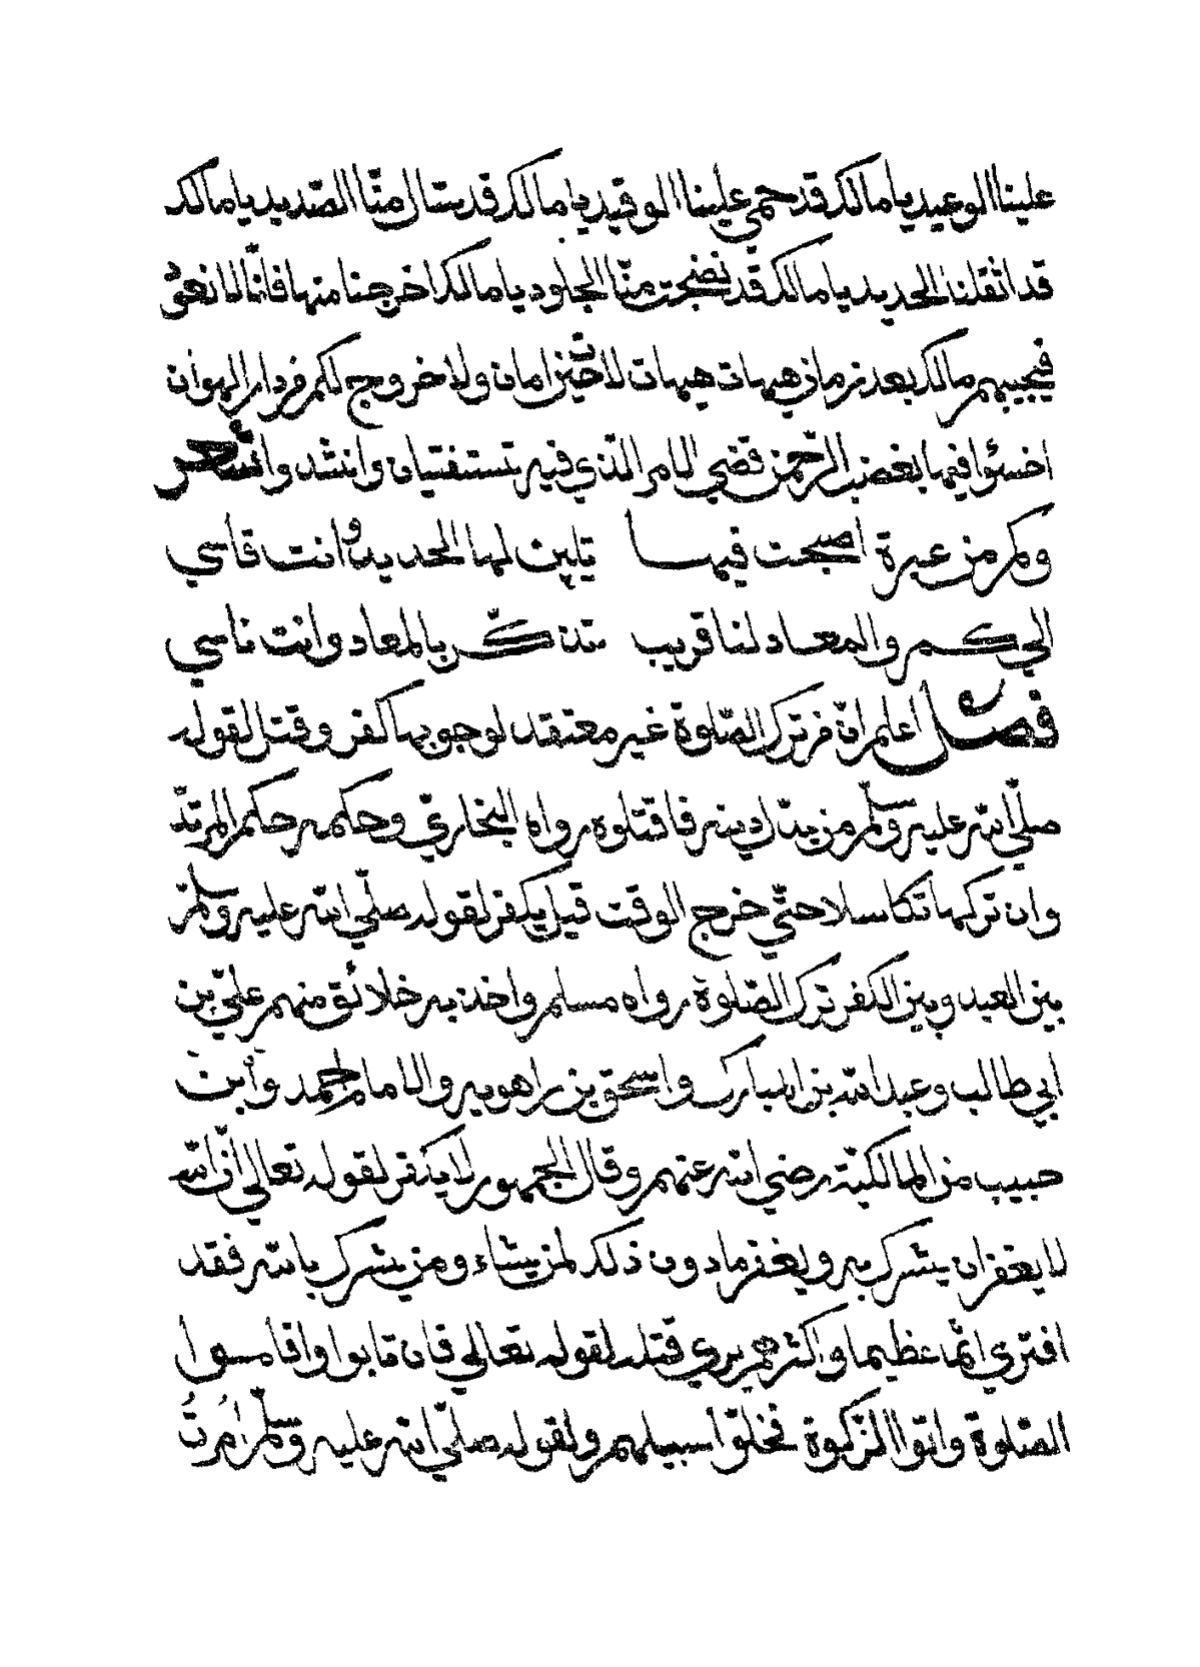 علينا الوعيد يا مالك قد حمي علينا الوقيد يا مالك قد سال منّا الصّديد يا مالك
قد اثقلنا الحديد يا مالك قد نضجت منّا الجلود يا مالك اخرجنا منها فانّا لا نعود
فيجيبهم مالك بعد زمان هيهات هيهات لا حين امان ولا خروج لكم من دار الهوان
اخسؤا فيها بغضب الرّحمن قضي الامر الّذي فيه تستفتيان وانشد
وكم من عبرة اصبحت فيها يلين لها الحديد وانت قاسي
الي كم والمعاد لنا قريب تذكّر بالمعاد وانت ناسي
فصل اعلم انّ من ترك الصّلوة غير معتقد لوجوبها كفر وقتل لقوله
صلّي الله عليه وسلّم من بدّل دينه فاقتلوه رواه البخاريّ وحكمه حكم المرتدّ
وان تركها تكاسلا حتّي خرج الوقت قيل يكفر لقوله صلّي الله عليه وسلّم
بين العبد وبين الكفر ترك الصّلوة رواه مسلم واخذ به خلائق منهم عليّ بن
ابي طالب وعبد الله بن المبارك واسحق بن راهويه والامام احمد وابن
حبيب من المالكيّة رضي الله عنهم وقال الجمهور لا يكفر لقوله تعالي انّ الله
لا يغفر ان يشرك به ويغفر ما دون ذلك لمن يشاء ومن يشرك بالله فقد
افتري اثما عظيما واكثرهم يري قتله لقوله تعالي فان تابوا واقاموا
الصّلوة واتوا الزّكوة فخلّوا سبيلهم ولقوله صلّي الله عليه وسلّم اُمرتُ